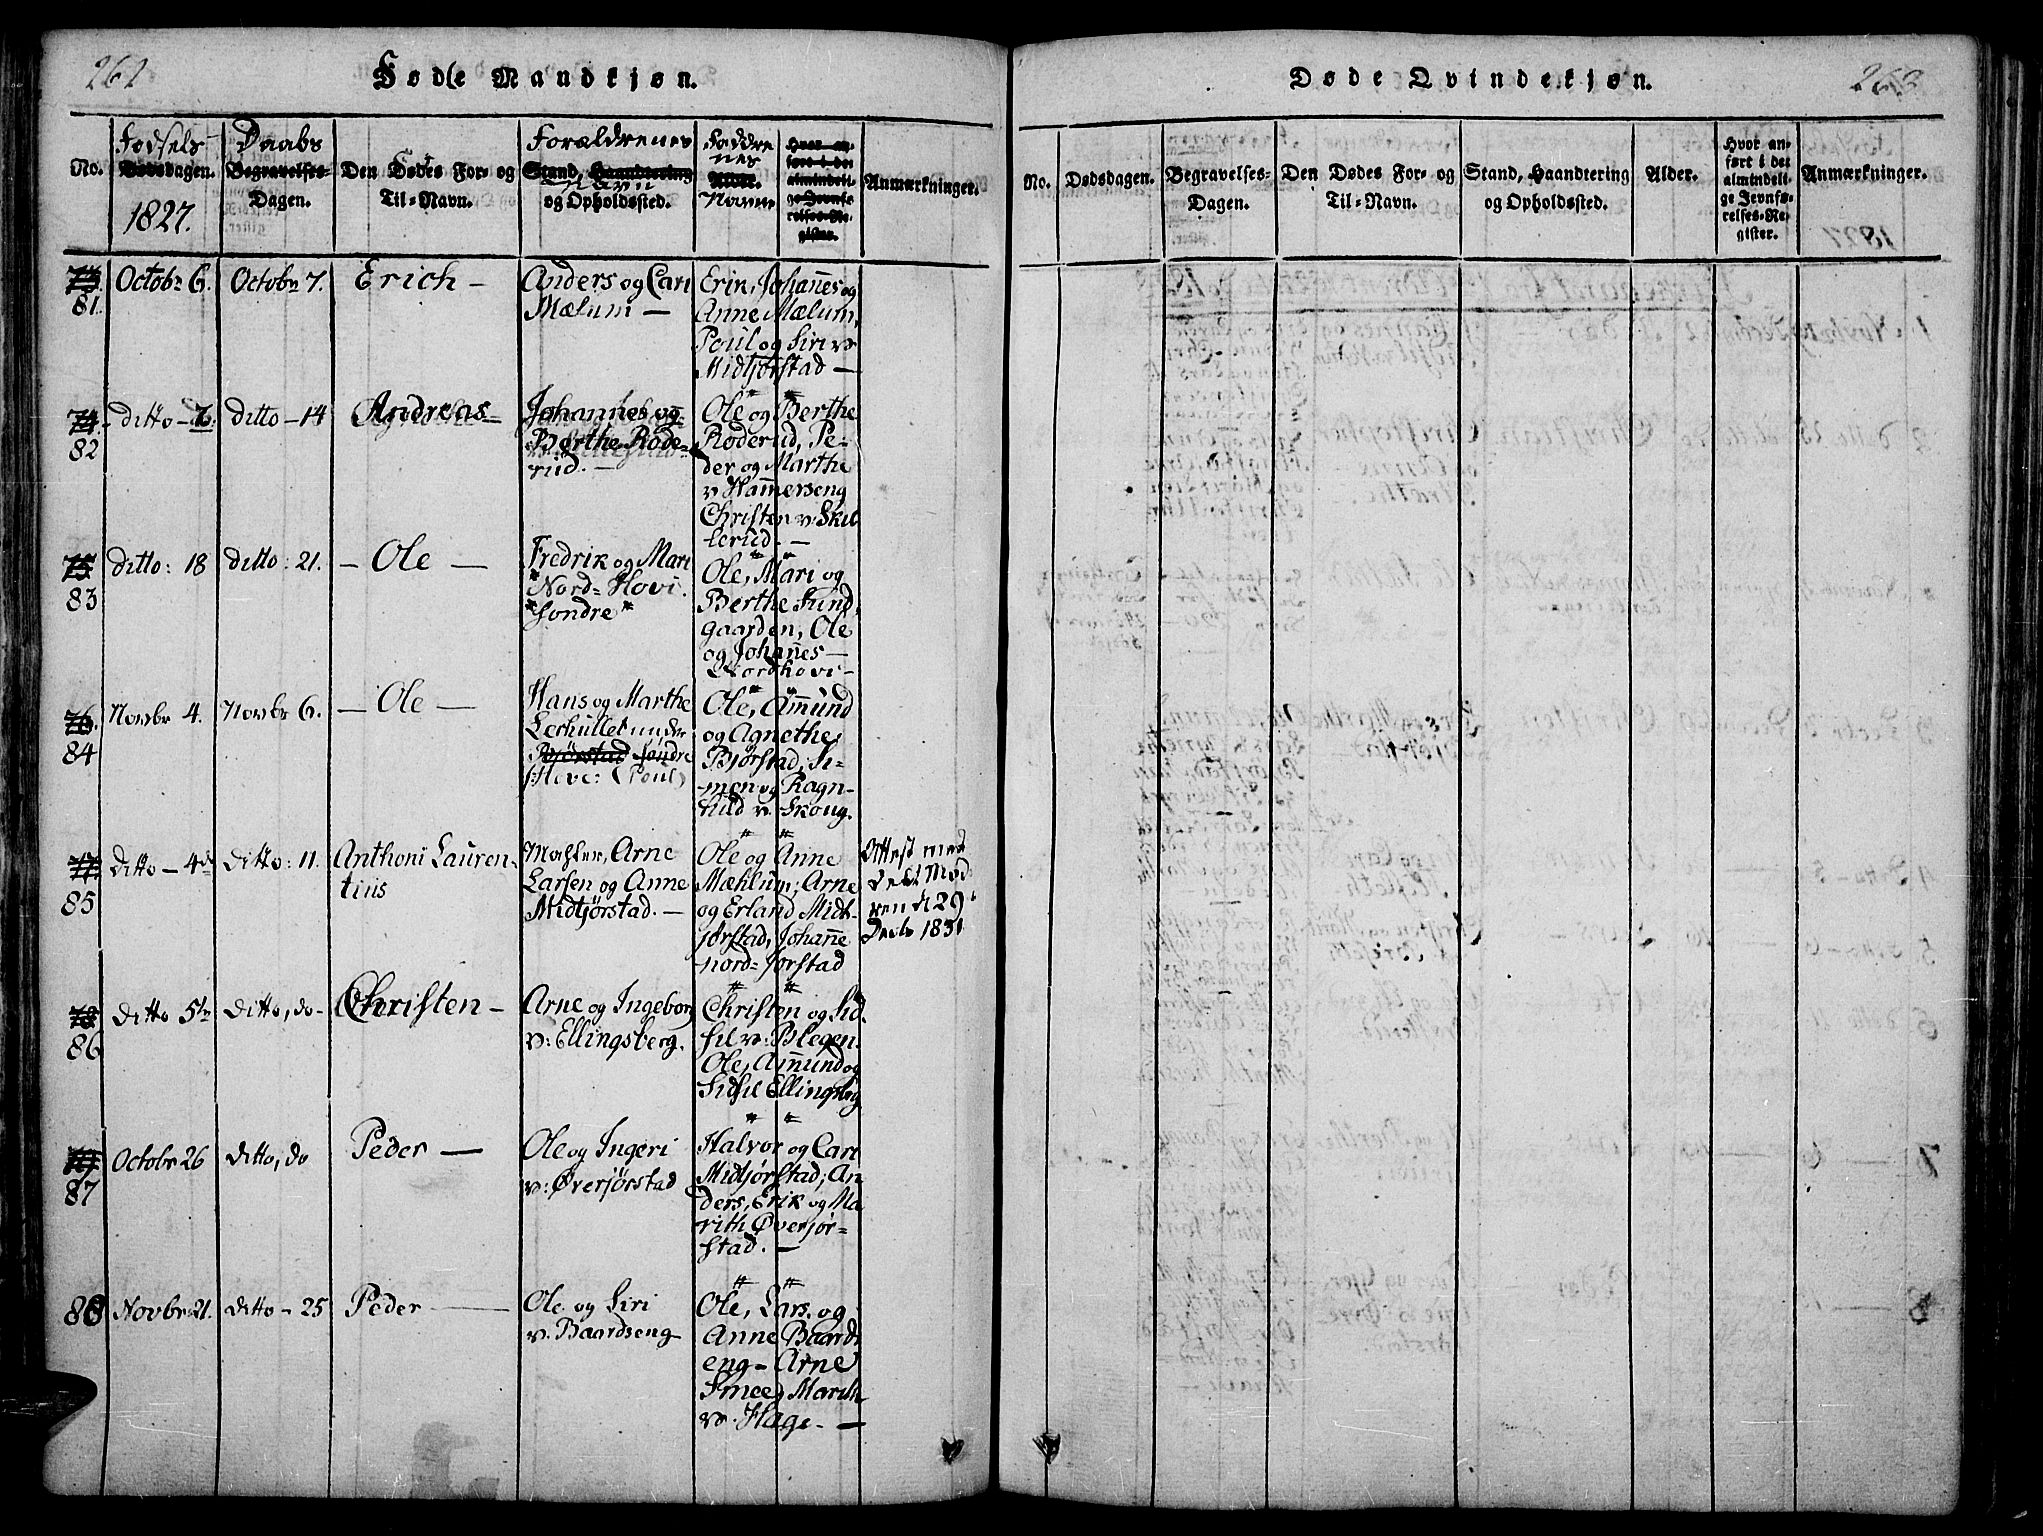 262
Fødte Mandkjøn.
No.
Fødsels
Dødsdagen.
1827.
Daabs
Begravelses-
Dagen.
Den Dødes For- og
Til-Navn.
Forældrenes
Stand, Haandtering
Navn
og Opholdssted.
Faddre
nes
Alder.
Navne
Hvor an-
ført i det
almindeli-
ge Jevnfø-
relses-Re-
gister.
Anmærkninger.
73.
81.
Octobr 6.
October 7.
Erich -
Anders og Cari
Mælum -
Erin, Johannes og
Anne Mælum,
Poul og Siri v.
Midtjørstad -
74
82
ditto - 7.
ditto - 14
Andreas -
Johannes og
Berthe Røde-
rud. -
Ole og Berthe
Røderud, Pe-
der og Marthe
v Hammerseng
Christen v. Skil
lerud. -
75
83
ditto: 18
ditto: 21.
- Ole -
Fredrik og Mari
Nord-Hovi.
"søndre"
Ole, Mari og
Berthe Sund
gaarden, Ole
og Johannes -
Nordhovi -
76.
84
Novbr 4.
Novbr 6.
- Ole -
Hans og Marthe
Lerhullet under
Bjørstad søndre
Hove: (Poul)
Ole, Amund
og Agnethe
Bjørstad, Si-
men og Ragn-
hild v. Skoug.
77.
85
ditto - 4de
ditto: 11.
Anthoni Lauren-
tius
Arne
Larsen og Anne
Midtjørstad. -
Ole og Anne
Mæhlum; Arne
og Erland Midt-
jørstad, Johanne
nord-Jørstad
Attest med
delt Mod
ren d 29
Decbr 1831
78
86
ditto 5te
ditto, do-
Christen -
Arne og Ingeborg
v: Ellingsberg.
Christen og Sid
sil v: Blegen.
Ole, Amund og
Sidsil Ellingsberg
79
87
Octobr 26
ditto, do
Peder -
Ole og Ingeri
v: Øverjørstad
Halvor og Cari
Midtjørstad; An
ders, Erik og Ma
rith Øverjør-
stad. -
88
Novbr 21.
ditto - 25
Peder -
Ole og Siri
v. Baardseng
Ole, Lars, og
Anne Baards
eng - Arne
Marith
v. Hage. -
263
Døde Qvindekjøn.
No.
Dødsdagen.
Begravelses-
Dagen.
Den Dødes For- og
Til-Navn.
Stand, Haandtering
og Opholdssted.
Alder.
Hvor an-
ført i det
almindeli-
ge Jevnfø-
relses-Re-
gister.
Anmærkninger.